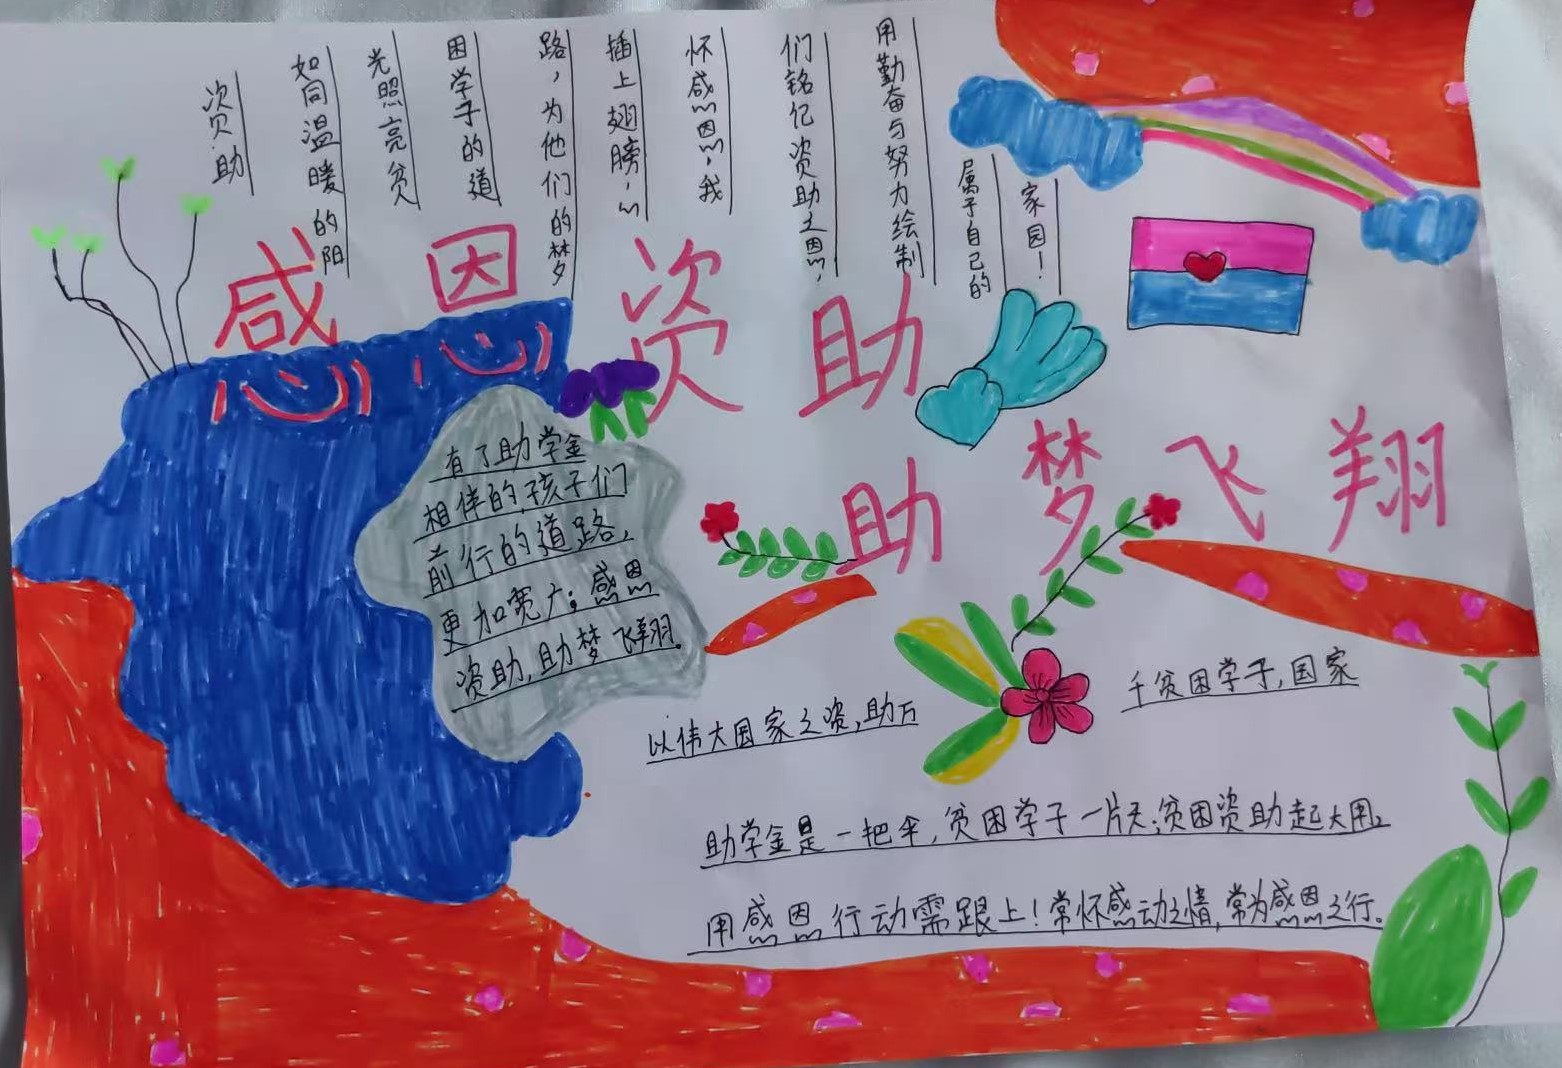 资助
如同温暖的阳
光照亮贫
困学子的道
路，为他们的梦
插上翅膀，心
怀感恩，我
们铭亿资助之恩，
用勤奋与努力绘制
属于自己的
家园！
感恩资助
助梦飞翔
有了助学金
相伴的,孩子们
前行的道路，
更加宽广；感恩
资助，助梦飞翔。
以伟大国家之资，助万
千贫困学子，国家
助学金是一把伞，贫困学子一片天；贫困资助起大用，
用感恩行动需跟上！常怀感动之情，常为感恩之行。